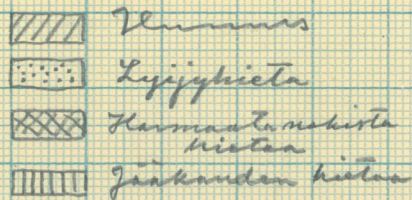 Humus
Lyijyhieta
Harmaata nokista
hietaa
Jääkauden hietaa